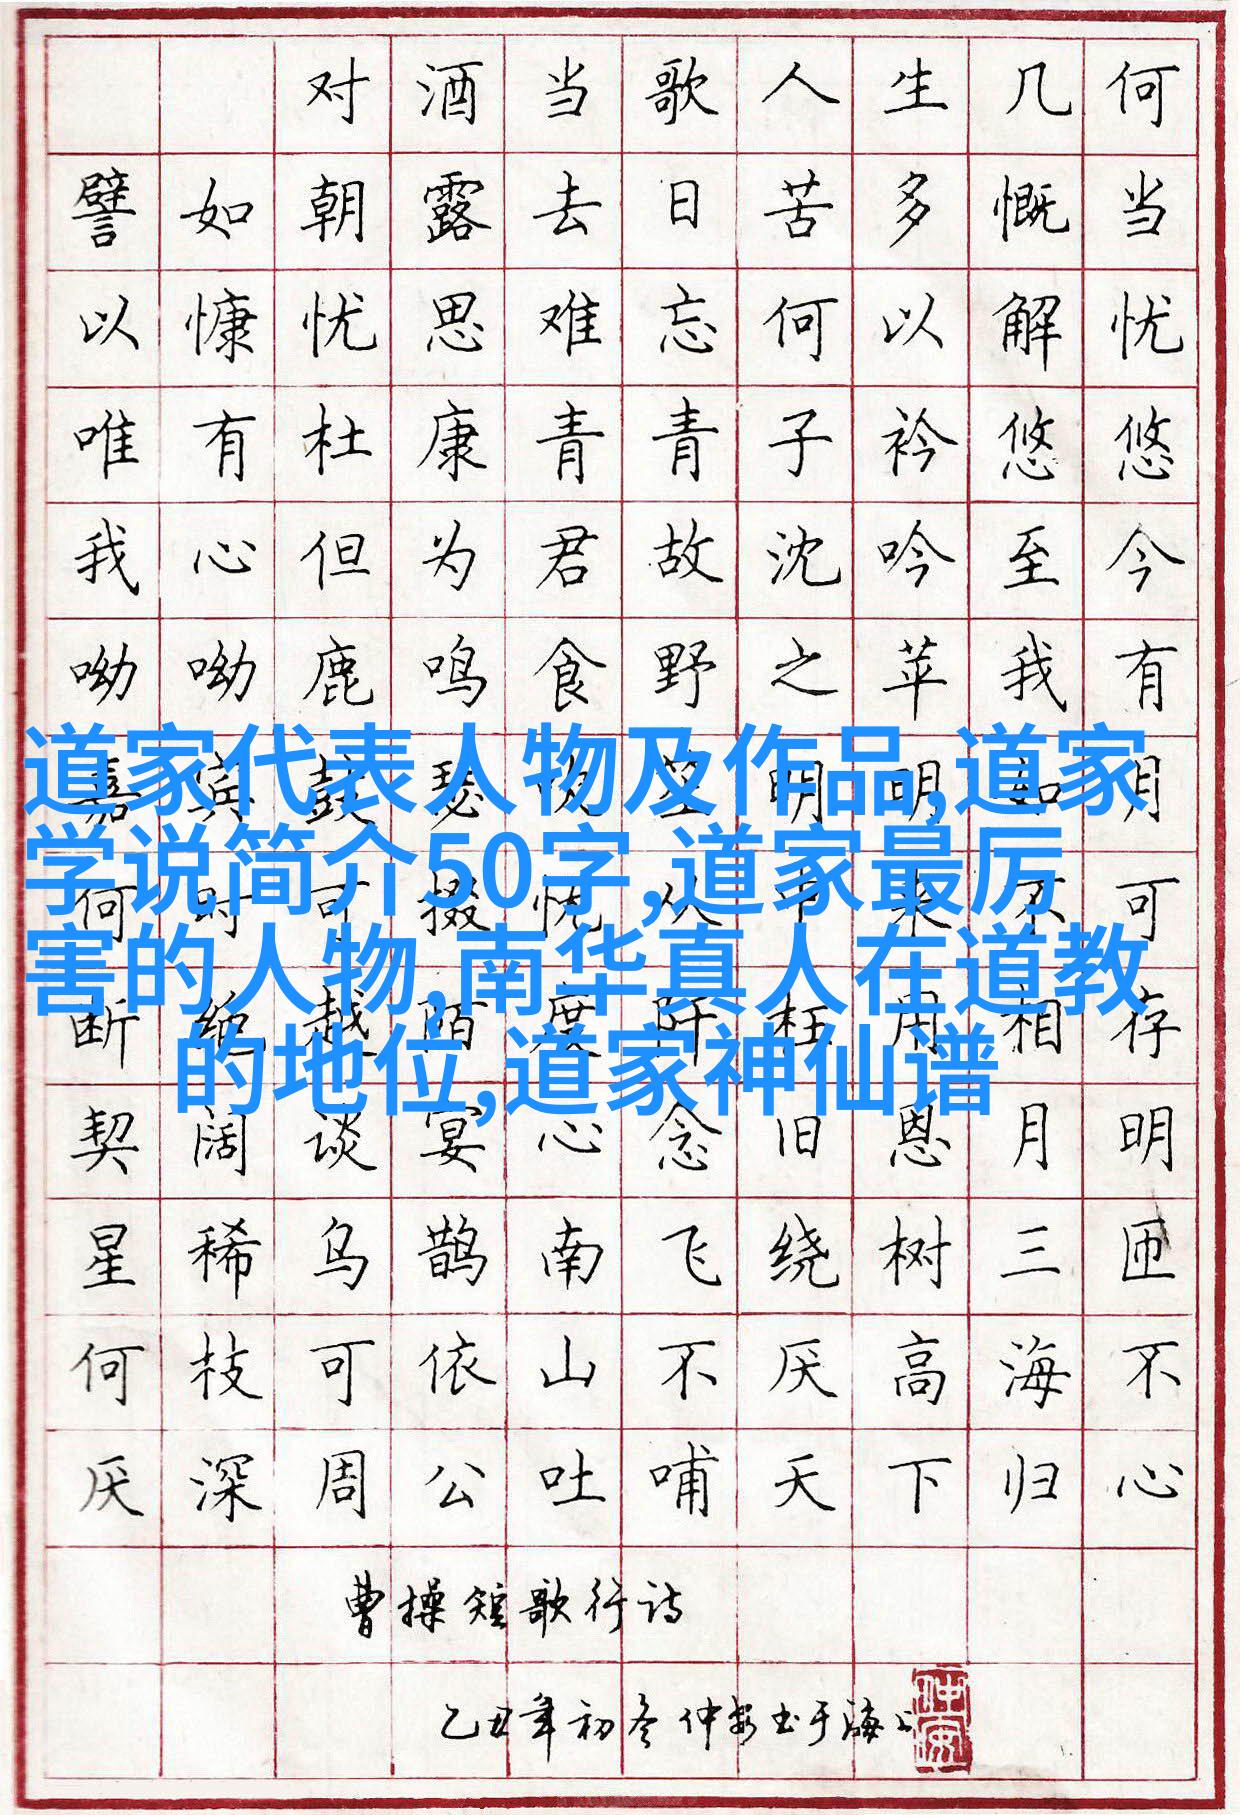 对酒当歌人生几何
譬如朝露去日苦多慨当
以慷忧思难忘何以解忧
唯有杜康青青子衿悠悠
我心但为君故沈吟至今
呦呦鹿鸣食野之苹我有
嘉宾鼓瑟吹笙明明如月
道家代表人物及作品,道家
学说简介50字,道家最厉
害的人物,南华真人在道教
的地位,道家神仙谱
何时可掇忧从中来不可
断绝越陌度阡枉用相存
契阔谈宴心念旧恩月明
星稀乌鹊南飞绕树三匝
何枝可依山不厌高海不
厌深周公吐哺天下归心
曹操短歌行诗
乙丑年初冬仲安书于海上
仲安